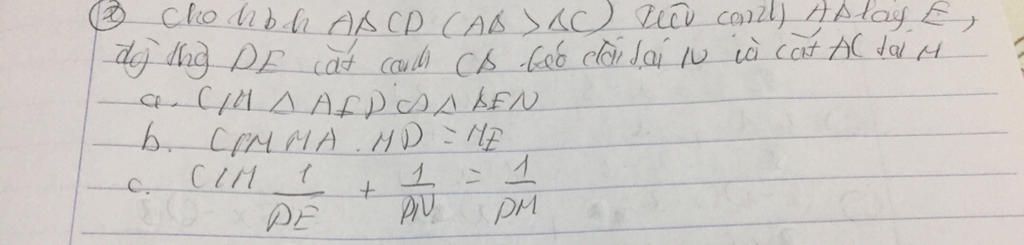 ② Cho hbh ABCD (AB > BC) Trên cạnh AB lấy E,
đg thg DE cắt cạnh CB kéo dài tại N và cắt AC tại M
a. C/M △ AED ∽ △ BEN
b. C/M MA . MD = ME
c. C/M 1/DE + 1/DN = 1/DM